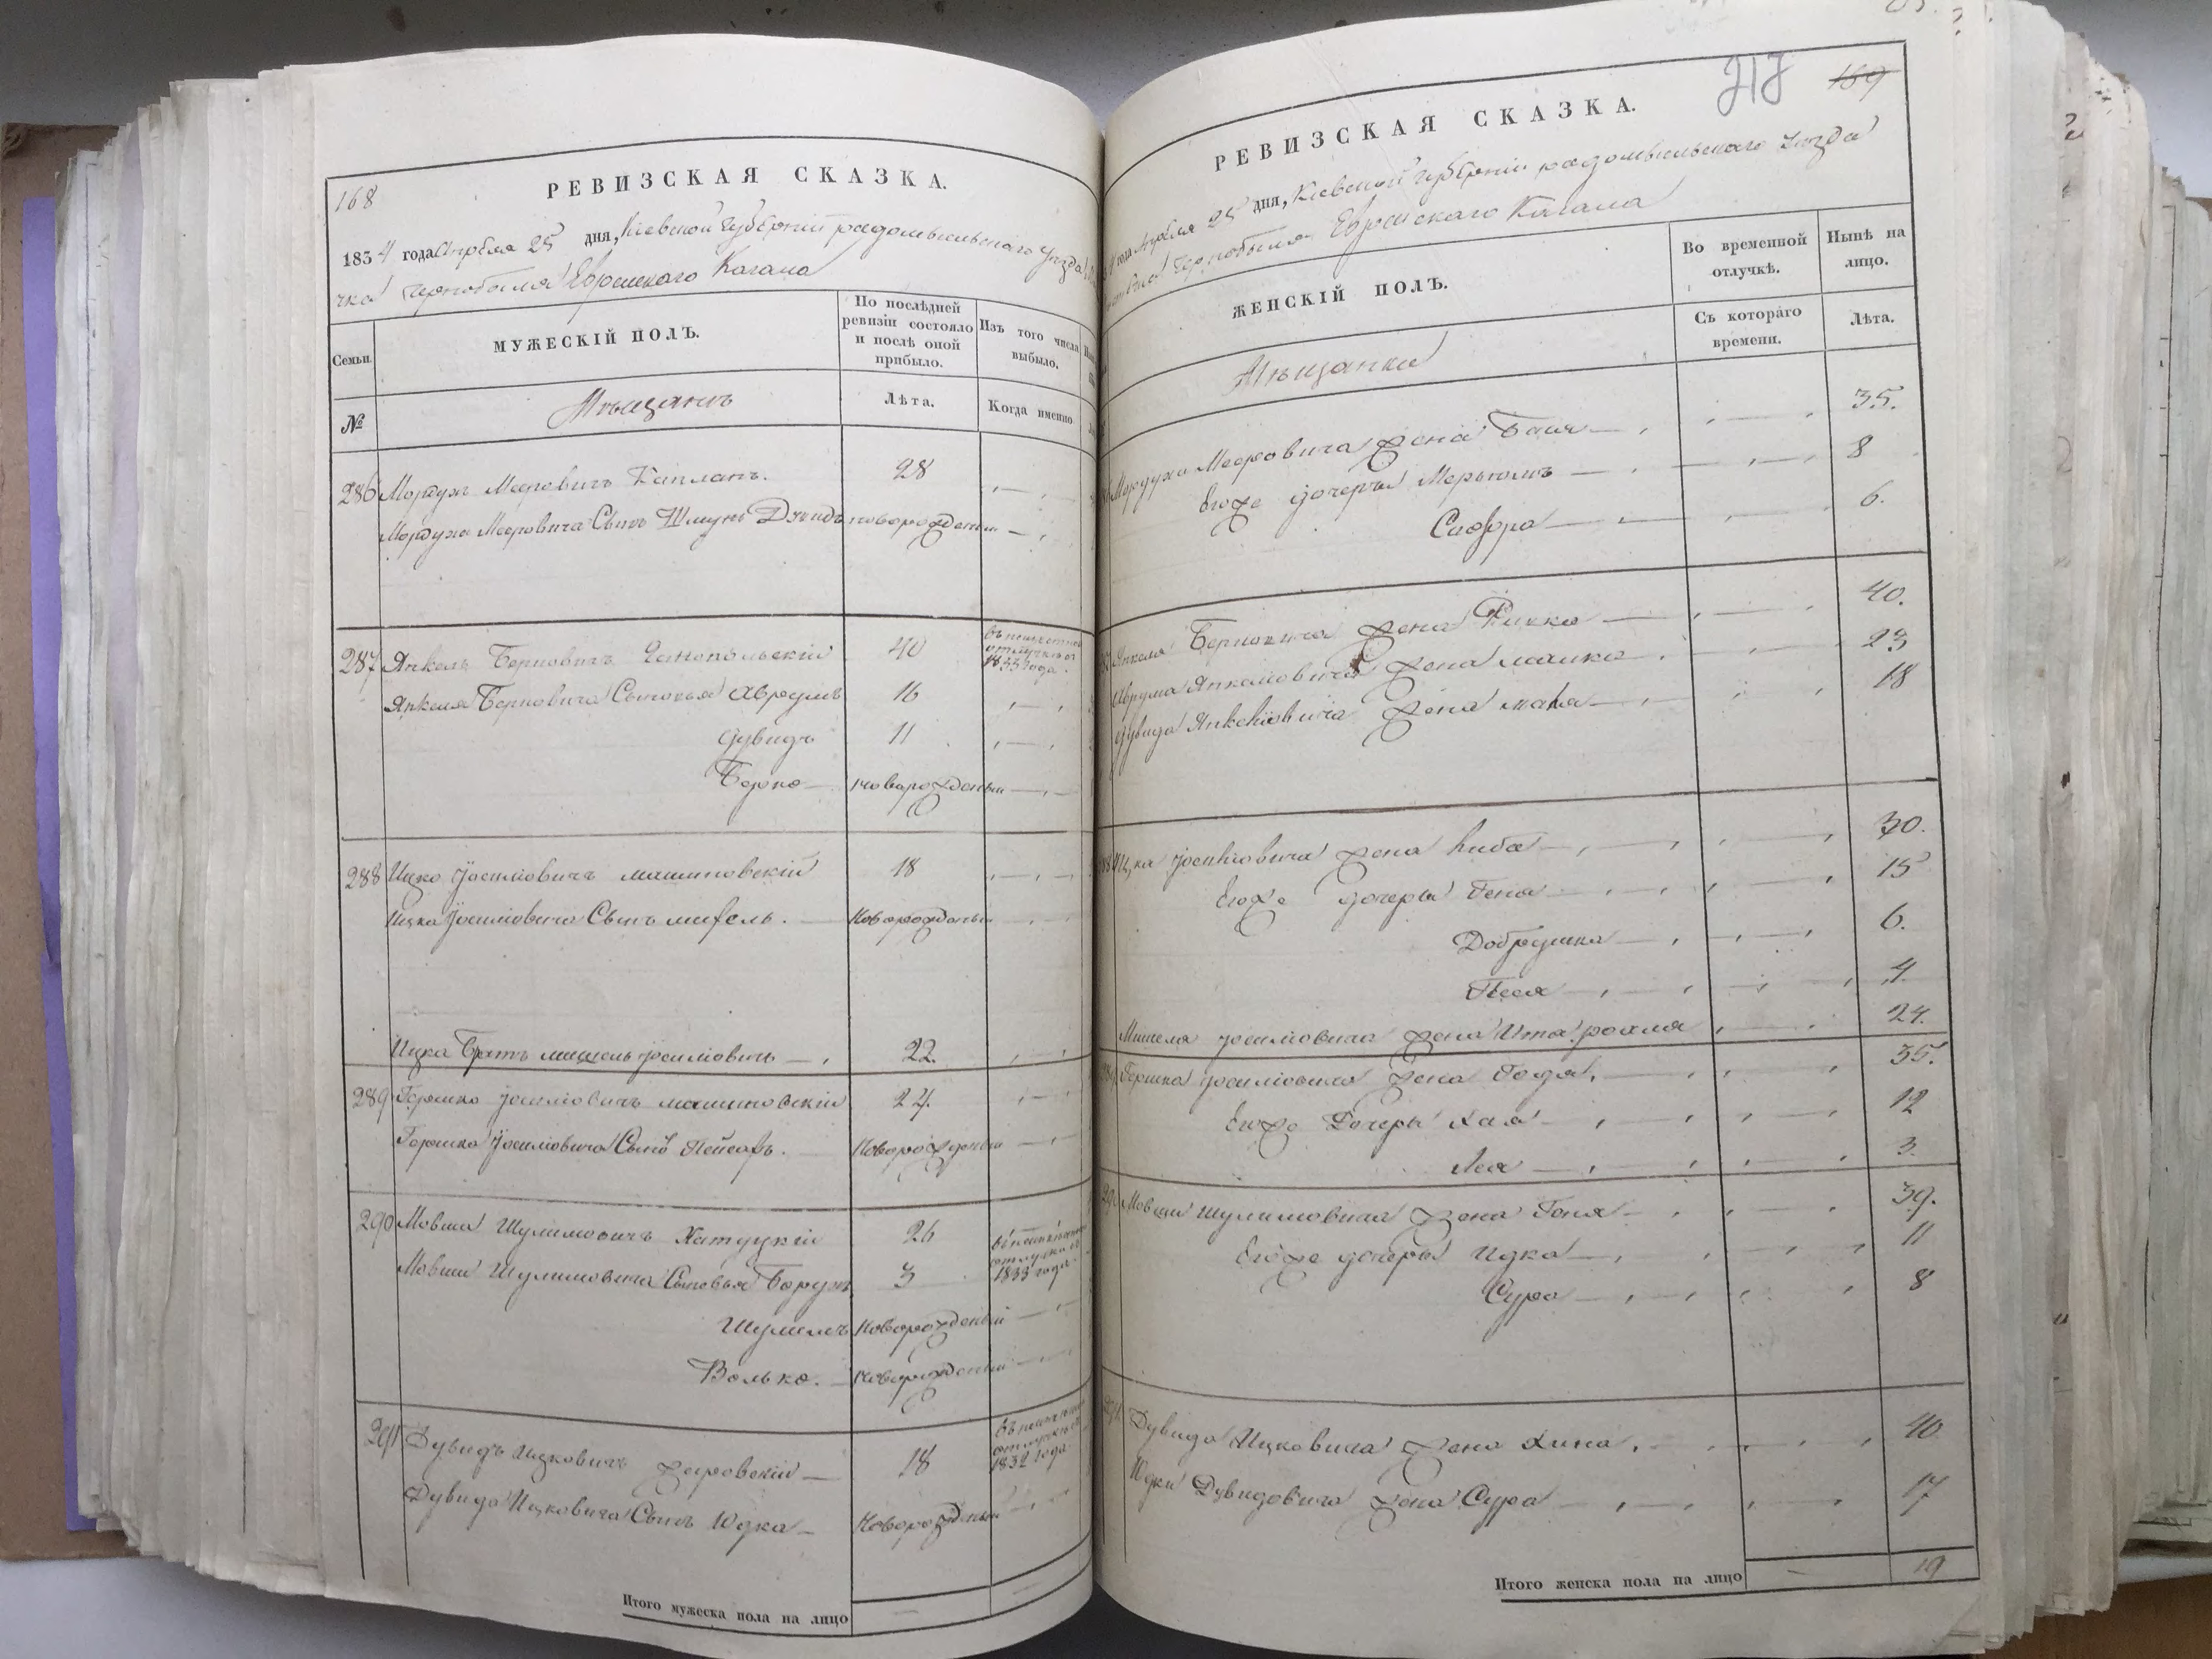 168
РЕВИЗСКАЯ СКАЗКА.
1834 года Апреля 25 дня, Кіевской Губерніи радомысльскаго уезда
чка чернобыля Еврейского Кагала
Семьи
МУЖЕСКІЙ ПОЛЪ.
По послѣдней ревизіи состояло и послѣ оной прибыло.
Изъ того числа выбыло.
№
Мѣщанъ
Лѣта.
Когда именно
286 Мордухъ Мееровичъ Капланъ. 28
Мордуха Мееровича Сынъ Шмуль новорожденый
287 Янкель Берковичъ 40 отлучкѣ с 1833 года.
Янкеля Берковича Сыновья Аврумъ 16
Дувидъ 11
Берко новорожденый
288 Ицко Іосиліовичъ малиновскій 18
Ицка Іосиліовича Сынъ новорожденый
Ицка Братъ Іосиліовичъ 22.
289 Гершко Іосиліовичъ малиновскій 24.
Гершка Іосиліовича Сынъ Пейсахъ. новорожденый
290 Мовша Шулимовичъ Хатуцкій 26 отлучкѣ с 1833 года.
Мовши Шулимовича Сыновья Борухъ 3
Шулимъ новорожденый
Волько. новорожденый
291 Дувидъ Ицковичъ 18 отлучкѣ с 1832 года
Дувида Ицковича Сынъ Юдка новорожденый
Итого мужеска пола на лицо
169
РЕВИЗСКАЯ СКАЗКА.
года Апреля 25 дня, Кіевской Губерніи радомысльскаго уезда
чернобыля Еврейского Кагала
ЖЕНСКІЙ ПОЛЪ.
Во временной отлучкѣ.
Нынѣ на лицо.
Мѣщанки
Съ котораго времени.
Лѣта.
Мордуха Мееровича жена Бася 35.
Егоже дочеры 8
6.
Янкеля Берковича жена Ривка 40.
Аврума Янкеліовича жена малка 23
Дувида Янкеліовича жена 18
Ицка Іосиліовича жена Либа 30.
Егоже дочеры Гена 15
Добрушка 6.
Песя 4.
Іосиліовича жена Ита рохля 24.
Гершка Іосиліовича жена 35.
Егоже Дочеры Хая 12
Лея 3.
Мовши Шулимовича жена Геня 39.
Егоже дочеры 11
Сура 8
Дувида Ицковича жена Хина 40
Юдки Дувидовича жена Сура 17
Итого женска пола на лицо 19